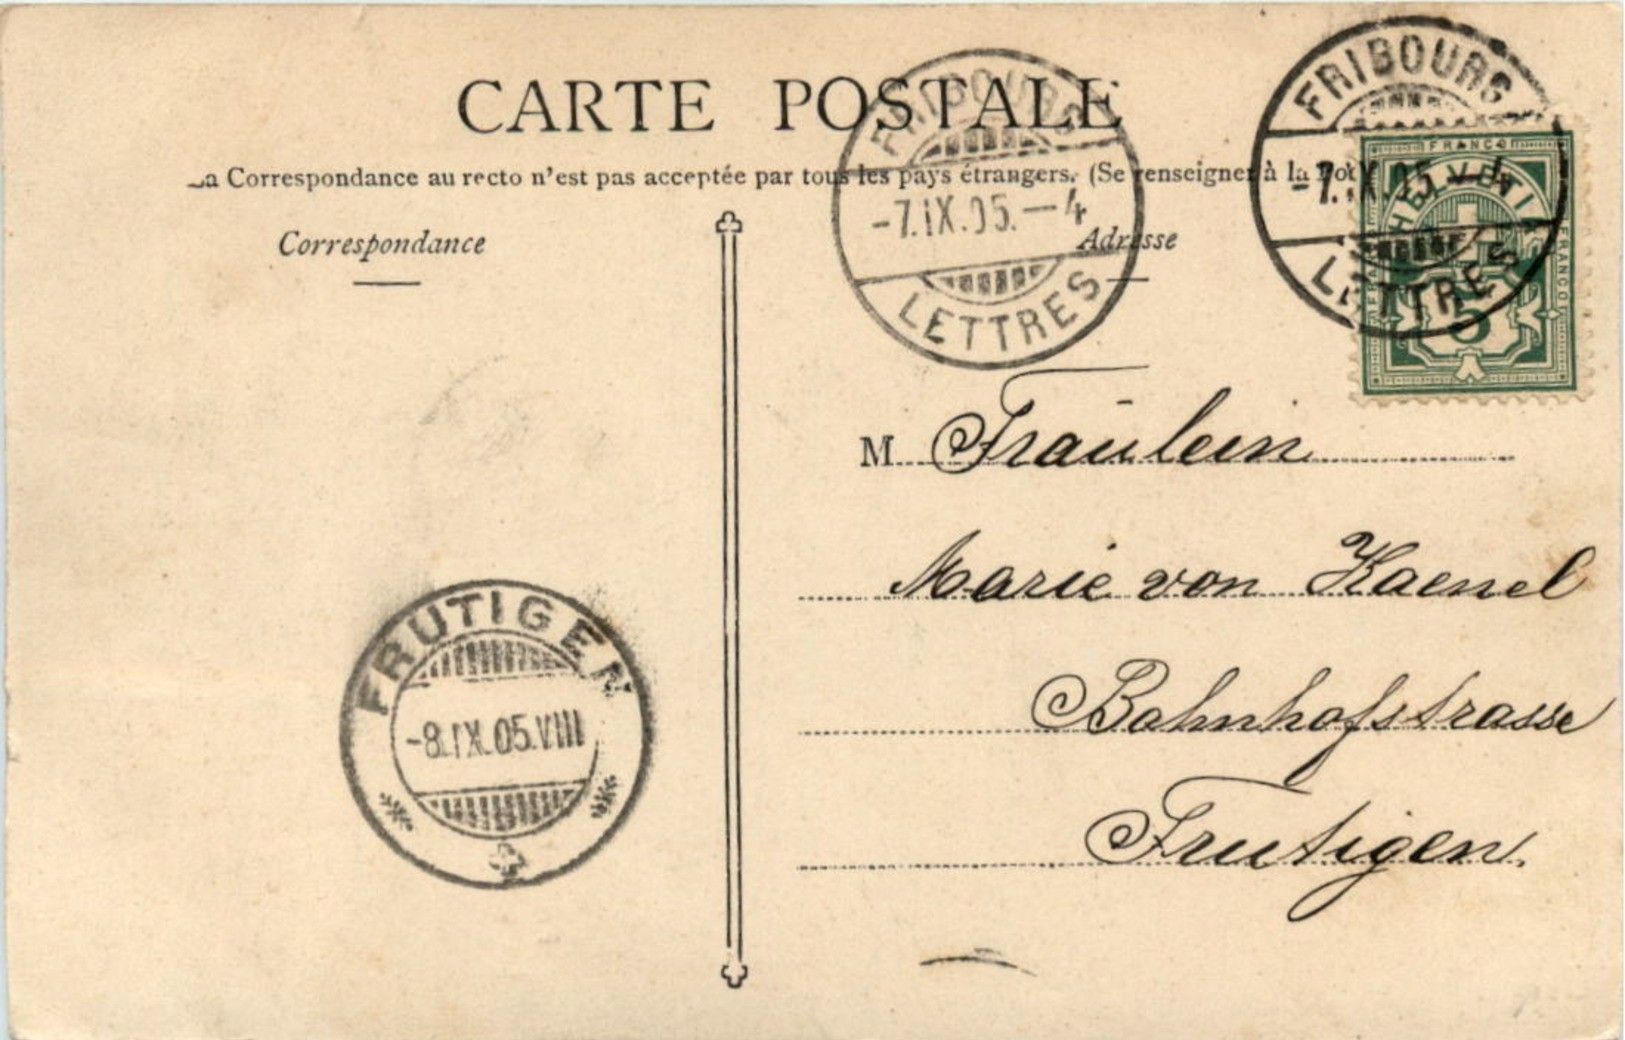 CARTE POSTALE
La Correspondance au recto n'est pas acceptée par tous les pays étrangers. (Se renseigner à la
Correspondance
Adresse
FRIBOURG
-7.IX.05.-4
LETTRES
FRIBOURG
-7.IX.05.-4
LETTRES
FRANCO
HELVETIA
FRANCO
5
M Fräulein
Marie von Kaenel
Bahnhofstrasse
Frutigen.
FRUTIGEN
-8.IX.05.VIII